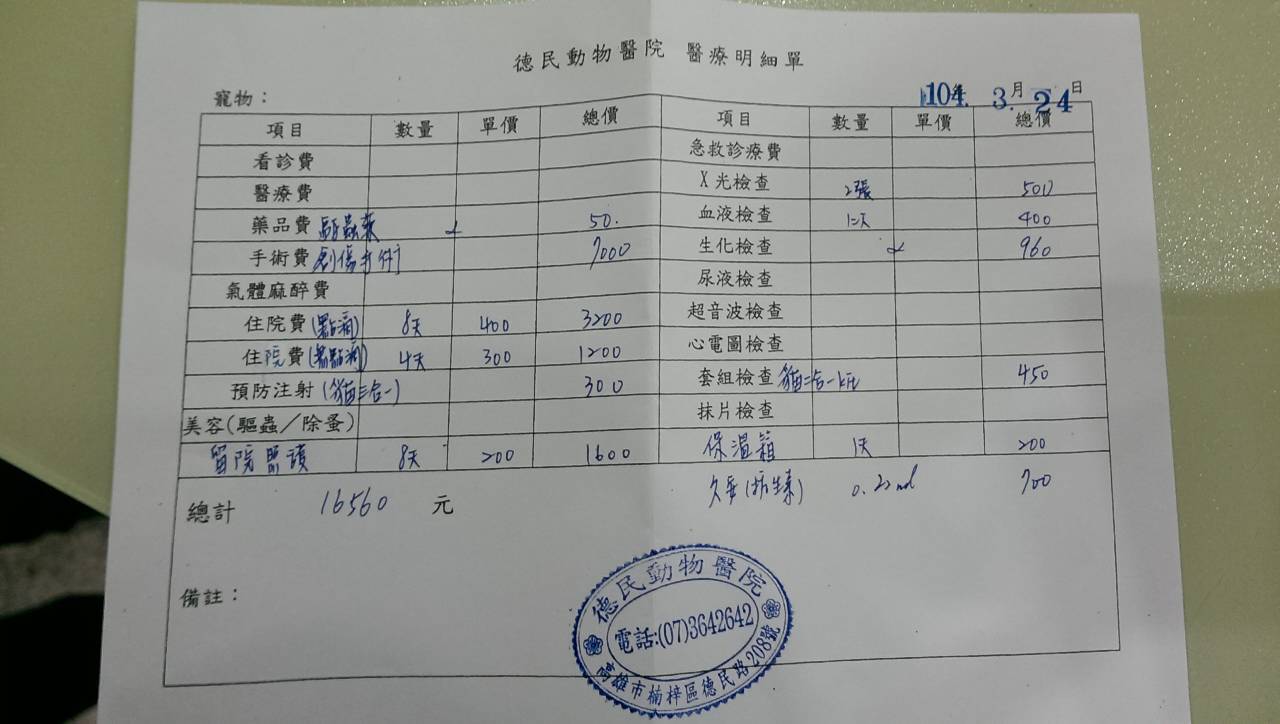 德民動物醫院 醫療明細單
寵物：
104年 3月 24日
項目 數量 單價 總價 項目 數量 單價 總價
看診費 急救診療費
醫療費 X光檢查 2張 500
藥品費 驅蟲藥 50. 血液檢查 400
手術費 創傷手術 7000 生化檢查 960
氣體麻醉費 尿液檢查
住院費(點滴) 8天 400 3200 超音波檢查
住院費 4天 300 1200 心電圖檢查
預防注射 (貓三合一) 300 套組檢查 貓二合一 450
美容(驅蟲／除蚤) 抹片檢查
留院照護 8天 200 1600 保溫箱 1天 200
總計 16560 元
700
備註：
德民動物醫院
電話:(07)3642642
高雄市楠梓區德民路208號